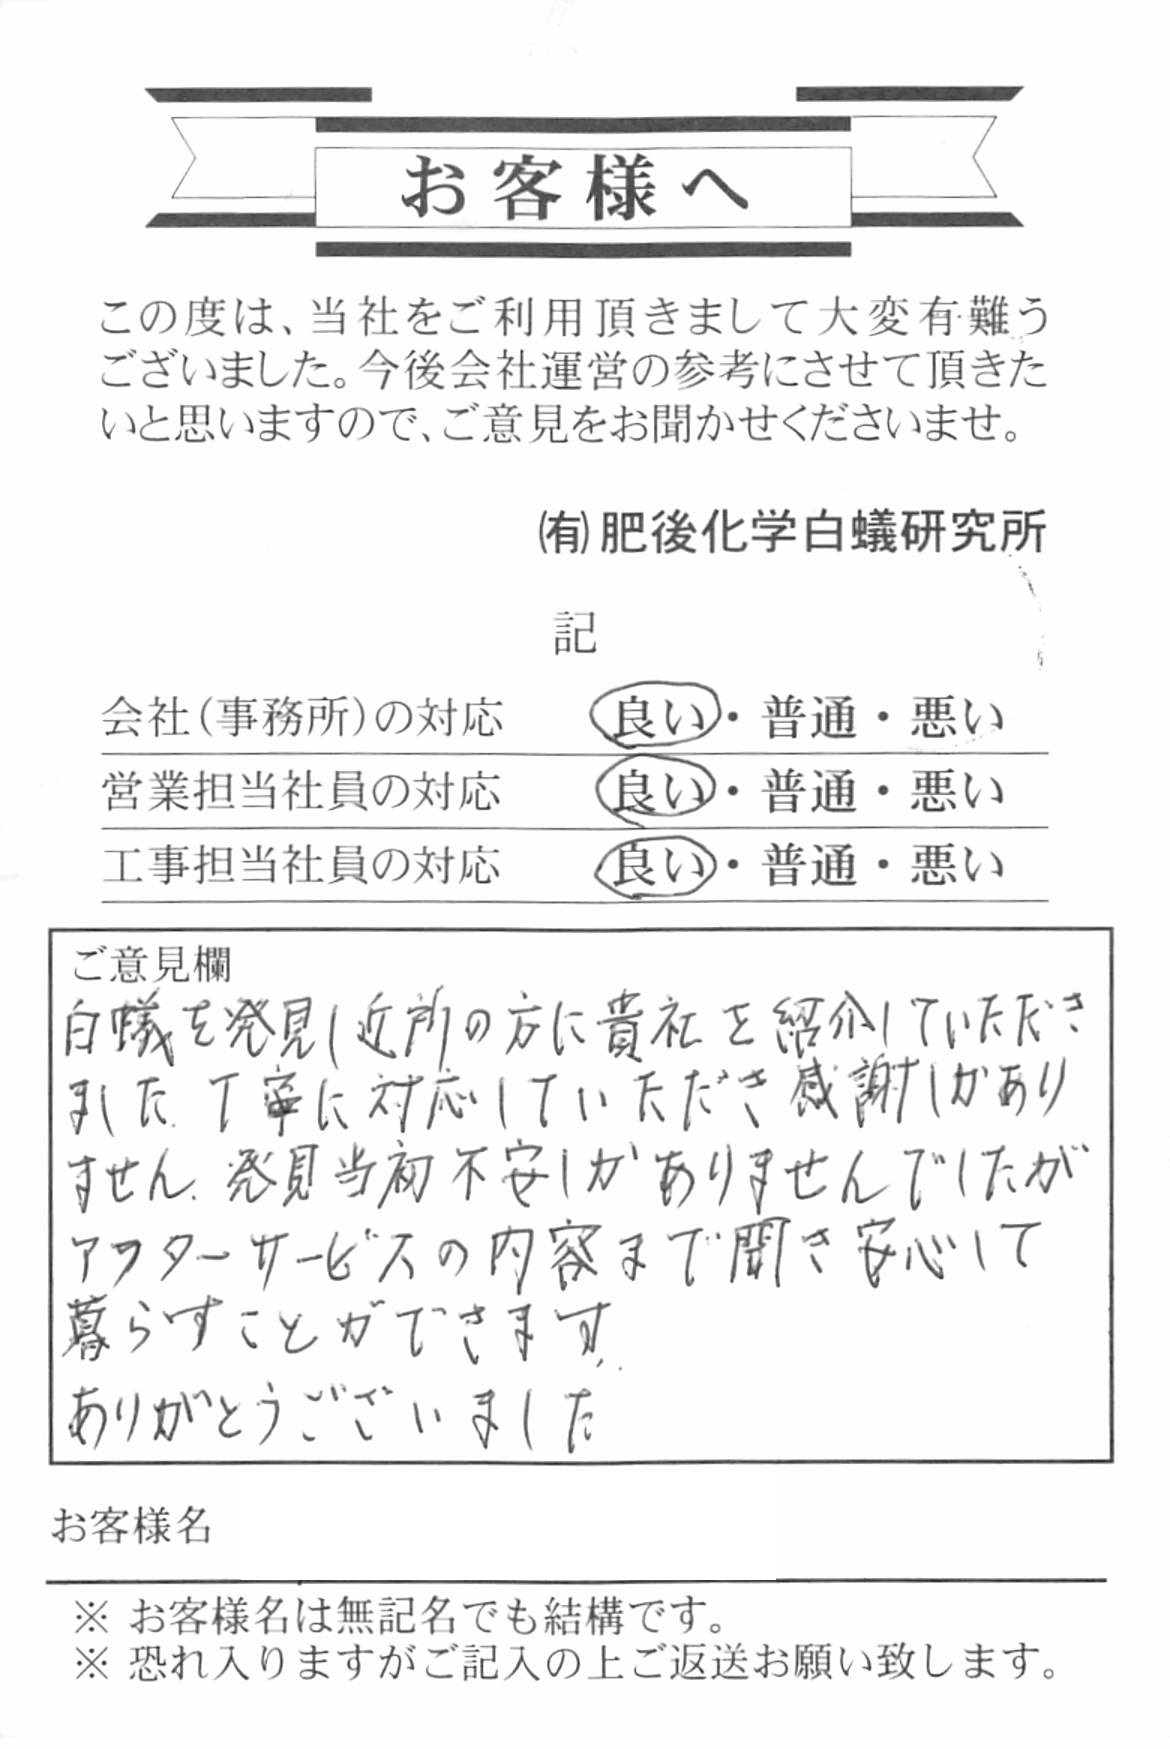 お客様へ
この度は、当社をご利用頂きまして大変有難う
ございました。今後会社運営の参考にさせて頂きた
いと思いますので、ご意見をお聞かせくださいませ。
㈲肥後化学白蟻研究所
記
会社(事務所)の対応 良い・普通・悪い
営業担当社員の対応 良い・普通・悪い
工事担当社員の対応 良い・普通・悪い
ご意見欄
白蟻を発見し近所の方に貴社を紹介していただき
ました。丁寧に対応していただき感謝しかあり
ません。発見当初不安しかありませんでしたが
アフターサービスの内容まで聞き安心して
暮らすことができます。
ありがとうございました
お客様名
※ お客様名は無記名でも結構です。
※ 恐れ入りますがご記入の上ご返送お願い致します。